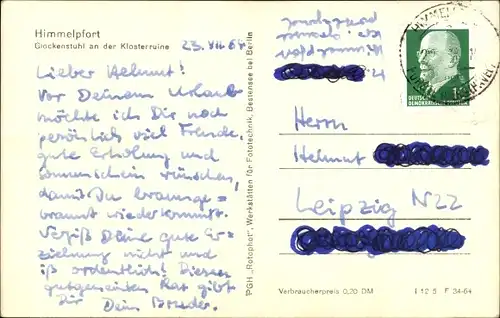 Himmelpfort
Glockenstuhl an der Klosterruine
23. VII 64
Lieber Helmut!
Vor Deinem Urlaub
möchte ich Dir noch
persönlich viel Freude,
gute Erholung und
Sonnenschein wünschen,
damit Du braunge-
brannt wiederkommst.
Vergiß Deine gute Er-
ziehung nicht und
iß ordentlich! Diesen
gutgemeinten Rat gibt
Dir Dein Bruder.
PGH „Rotophot", Werkstätten für Fototechnik, Bestensee bei Berlin
Himmelpfort
DEUTSCHE
DEMOKRATISCHE
Herrn
Helmut
Leipzig N22
Verbraucherpreis 0,20 DM
I 12 5 F 34-64